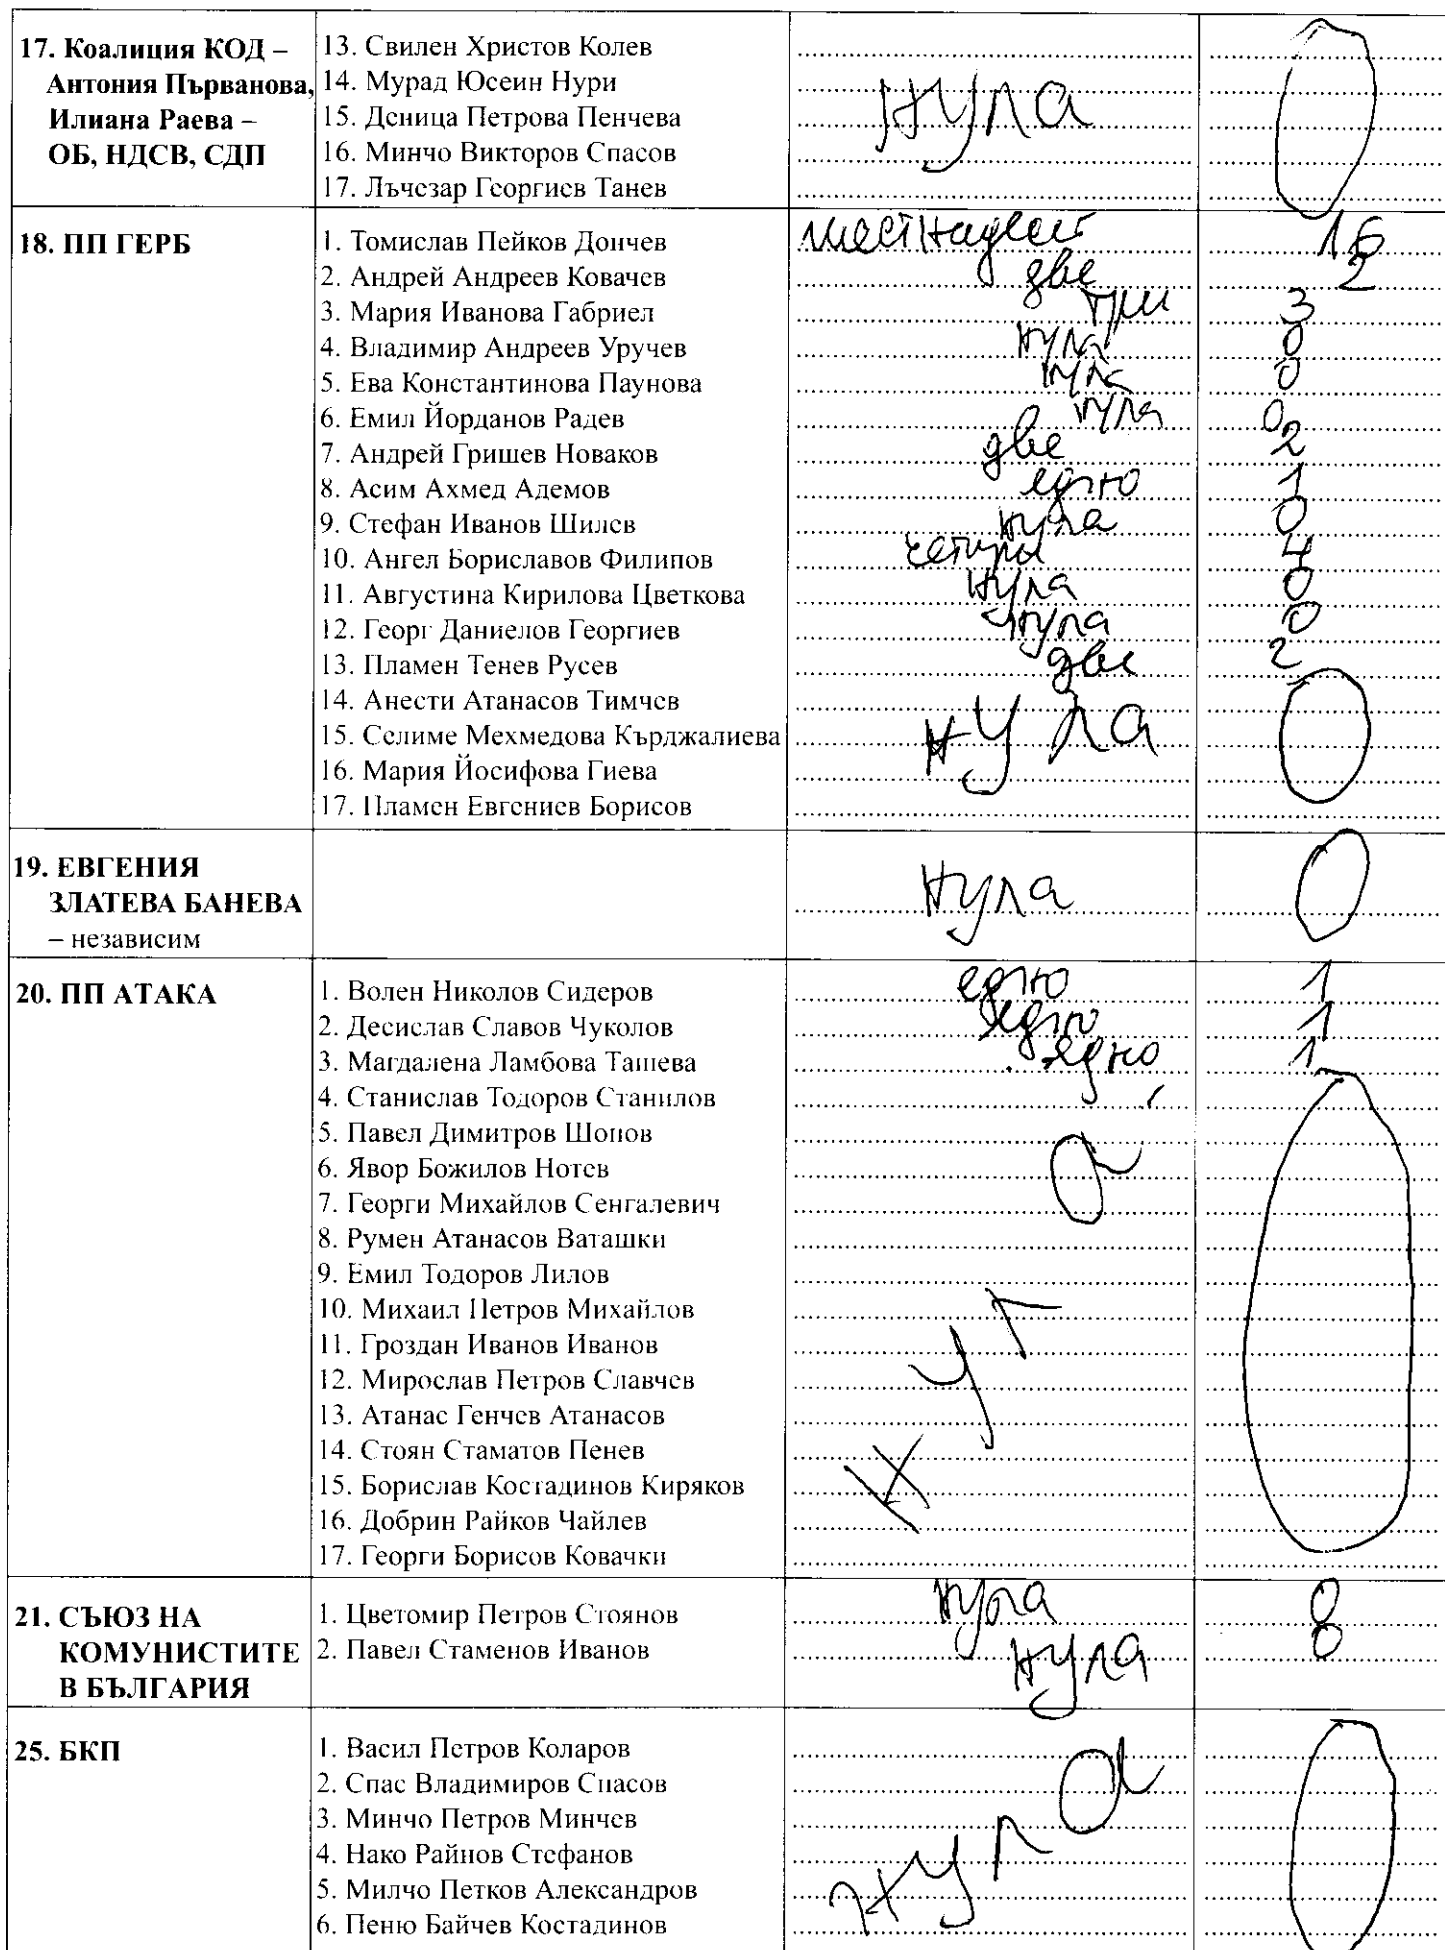 17. Коалиция КОД –
Антония Първанова,
Илиана Раева –
ОБ, НДСВ, СДП
13. Свилен Христов Колев
14. Мурад Юсеин Нури
15. Деница Петрова Пенчева
16. Минчо Викторов Спасов
17. Лъчезар Георгиев Танев
нула 0
18. ПП ГЕРБ
1. Томислав Пейков Дончев шестнадесет 16
2. Андрей Андреев Ковачев две 2
3. Мария Иванова Габриел три 3
4. Владимир Андреев Уручев нула 0
5. Ева Константинова Паунова нула 0
6. Емил Йорданов Радев нула 0
7. Андрей Гришев Новаков две 2
8. Асим Ахмед Адемов едно 1
9. Стефан Иванов Шилев нула 0
10. Ангел Бориславов Филипов четири 4
11. Августина Кирилова Цветкова нула 0
12. Георг Даниелов Георгиев нула 0
13. Пламен Тенев Русев две 2
14. Анести Атанасов Тимчев
15. Селиме Мехмедова Кърджалиева нула 0
16. Мария Йосифова Гиева
17. Пламен Евгениев Борисов
19. ЕВГЕНИЯ
ЗЛАТЕВА БАНЕВА
– независим
нула 0
20. ПП АТАКА
1. Волен Николов Сидеров едно 1
2. Десислав Славов Чуколов едно 1
3. Магдалена Ламбова Ташева едно 1
4. Станислав Тодоров Станилов
5. Павел Димитров Шопов
6. Явор Божилов Нотев
7. Георги Михайлов Сенгалевич
8. Румен Атанасов Ваташки
9. Емил Тодоров Лилов
10. Михаил Петров Михайлов
11. Гроздан Иванов Иванов
12. Мирослав Петров Славчев
13. Атанас Генчев Атанасов
14. Стоян Стаматов Пенев
15. Борислав Костадинов Киряков
16. Добрин Райков Чайлев
17. Георги Борисов Ковачки
нула 0
21. СЪЮЗ НА
КОМУНИСТИТЕ
В БЪЛГАРИЯ
1. Цветомир Петров Стоянов нула 0
2. Павел Стаменов Иванов нула 0
25. БКП
1. Васил Петров Коларов
2. Спас Владимиров Спасов
3. Минчо Петров Минчев
4. Нако Райнов Стефанов
5. Милчо Петков Александров
6. Пеню Байчев Костадинов
нула 0